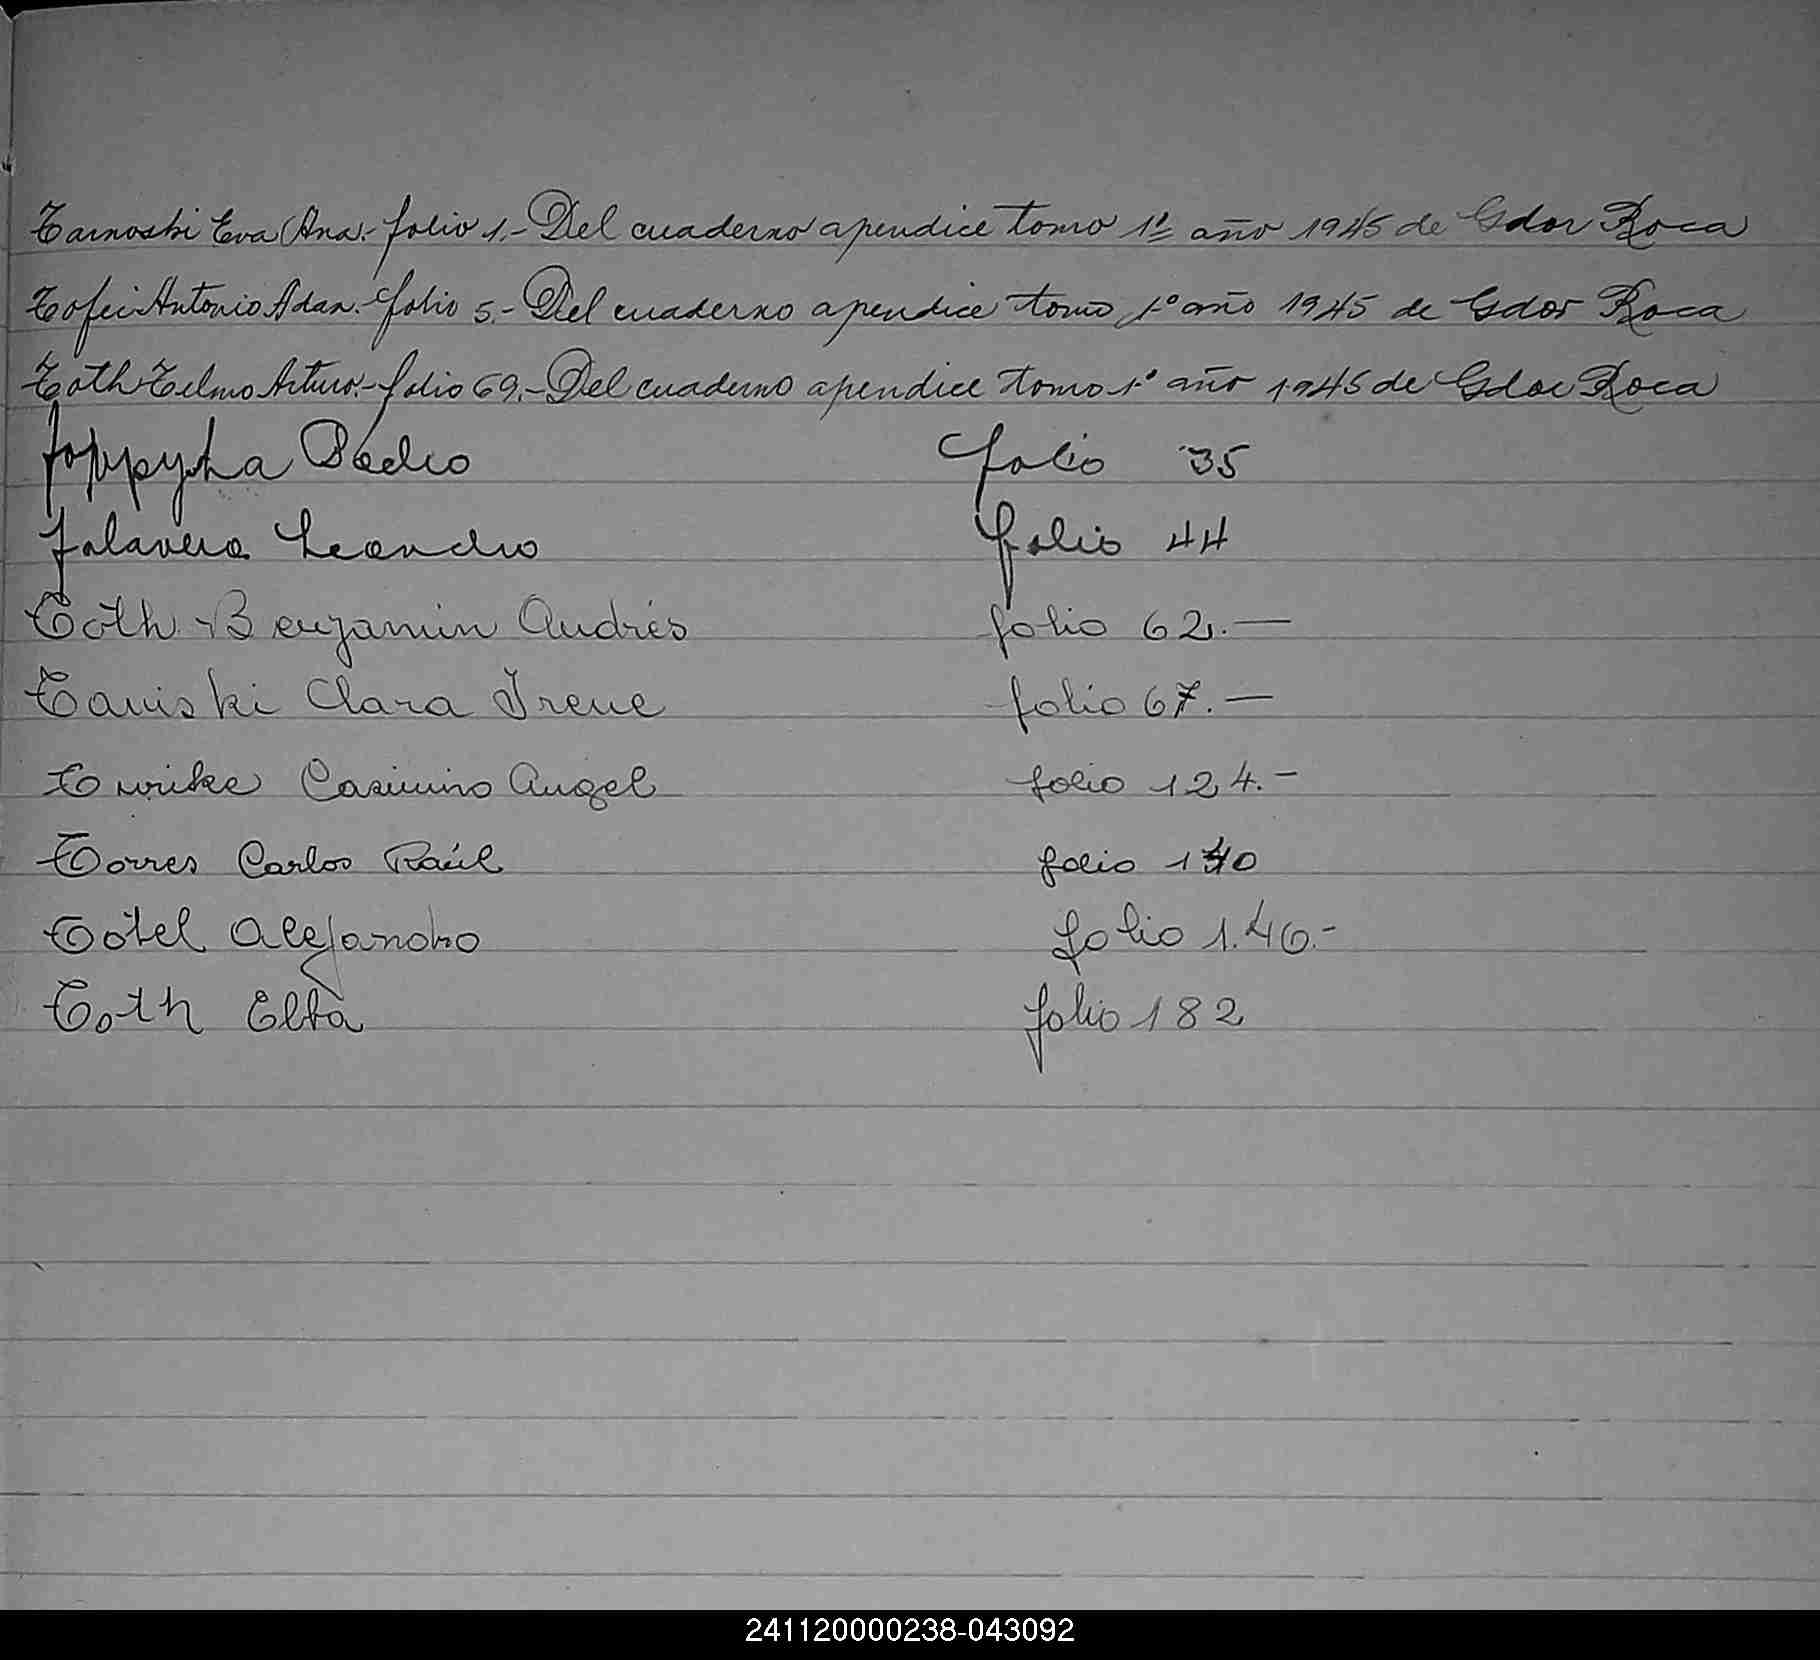 Tarnoski Eva Ana.- folio 1.- Del cuaderno apendice tomo 1º año 1945 de Gdor Roca
Tofei Antonio Adan.- folio 5.- Del cuaderno apendice tomo 1º año 1945 de Gdor Roca
Toth Telmo Arturo.- folio 69.- Del cuaderno apendice tomo 1º año 1945 de Gdor Roca
Pedro folio 35
Talavera Leandro folio 44
Toth Benjamin Andrés folio 62.—
Taviski Clara Irene folio 67.—
Casimiro Angel folio 124.-
Torres Carlos Raúl folio
Tótel Alejandro folio 1.46.-
Toth Elba folio 182
241120000238-043092